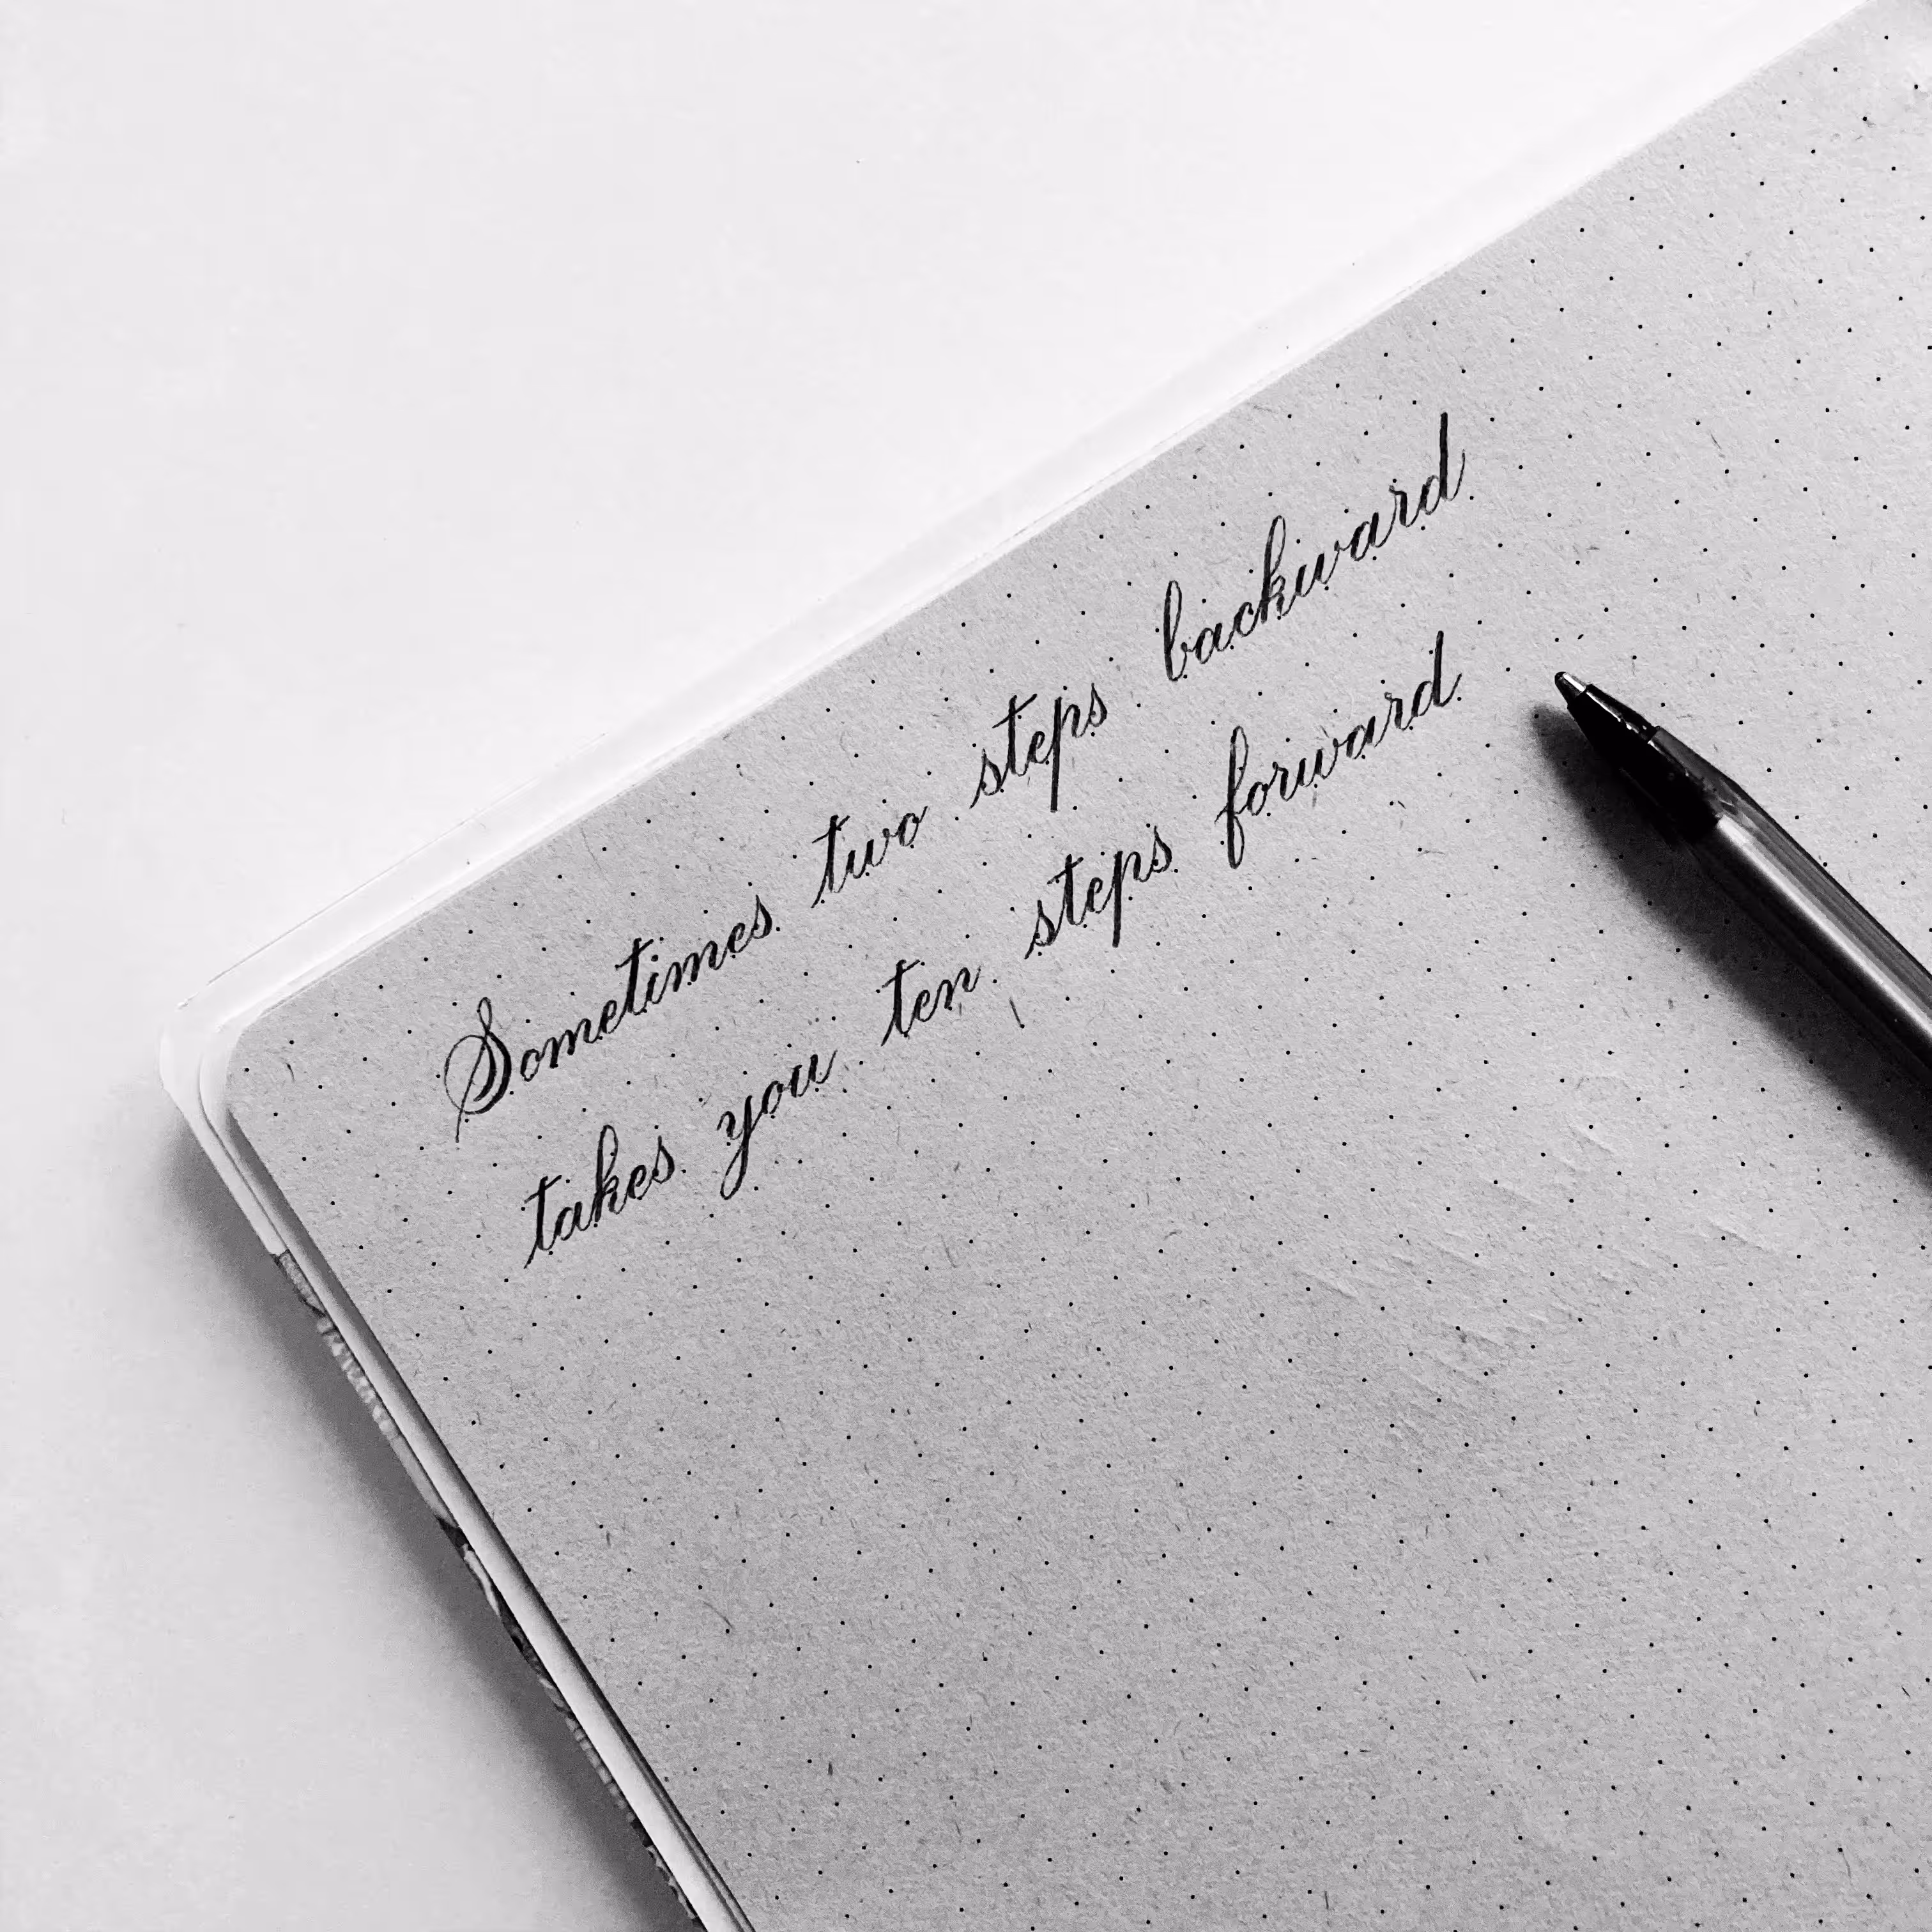 Sometimes two steps backward
takes you ten steps forward